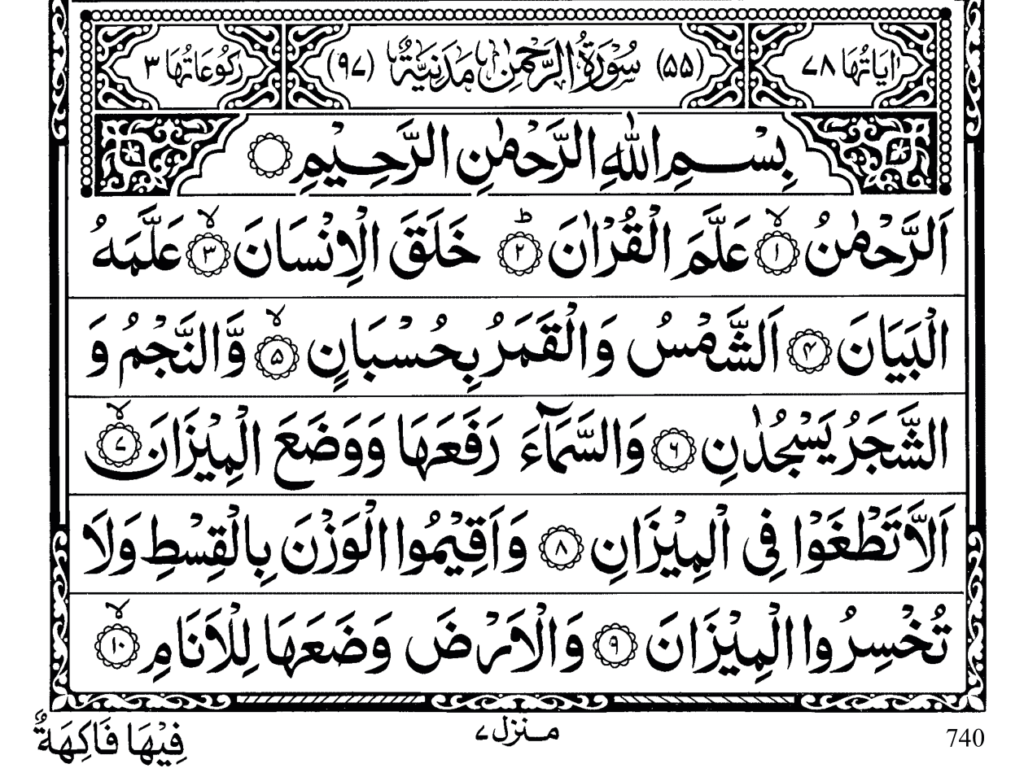 اٰيَاتُهَا ٧٨ (٥٥) سُوْرَةُ الرَّحْمٰنِ مَدَنِيَّةٌ (٩٧) رُكُوْعَاتُهَا ٣
بِسْمِ اللّٰهِ الرَّحْمٰنِ الرَّحِيْمِ
اَلرَّحْمٰنُ ۙ﴿۱﴾ عَلَّمَ الْقُرْاٰنَ ؕ﴿۲﴾ خَلَقَ الْاِنْسَانَ ۙ﴿۳﴾ عَلَّمَهُ
الْبَيَانَ ﴿۴﴾ اَلشَّمْسُ وَالْقَمَرُ بِحُسْبَانٍ ۙ﴿۵﴾ وَّالنَّجْمُ وَ
الشَّجَرُ يَسْجُدٰنِ ﴿۶﴾ وَالسَّمَآءَ رَفَعَهَا وَوَضَعَ الْمِيْزَانَ ۙ﴿۷﴾
اَلَّا تَطْغَوْا فِى الْمِيْزَانِ ﴿۸﴾ وَاَقِيْمُوا الْوَزْنَ بِالْقِسْطِ وَلَا
تُخْسِرُوا الْمِيْزَانَ ﴿۹﴾ وَالْاَرْضَ وَضَعَهَا لِلْاَنَامِ ۙ﴿۱۰﴾
فِيْهَا فَاكِهَةٌ منزل ۷ 740